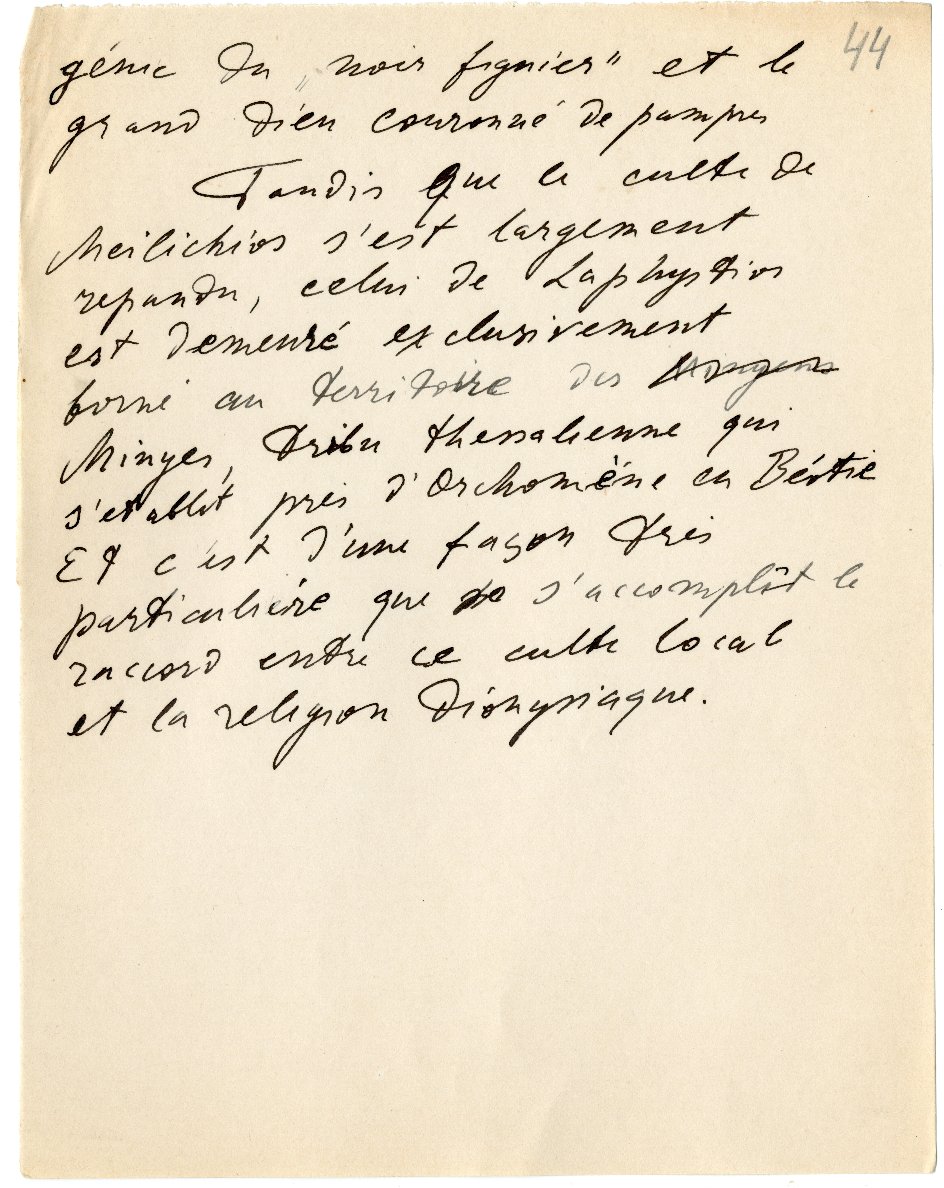 44
génie du „noir figuier" et le
grand dieu couronné de pampres
Tandis que le culte de
Meilichios s'est largement
repandu, celui de Laphystios
est demeuré exclusivement
borné au territoire des
Minyes, tribu thessalienne qui
s'etablit près d'Orchomène en Béotie
Et c'est d'une façon très
particulière que s'accomplît le
raccord entre ce culte local
et la religion dionysiaque.